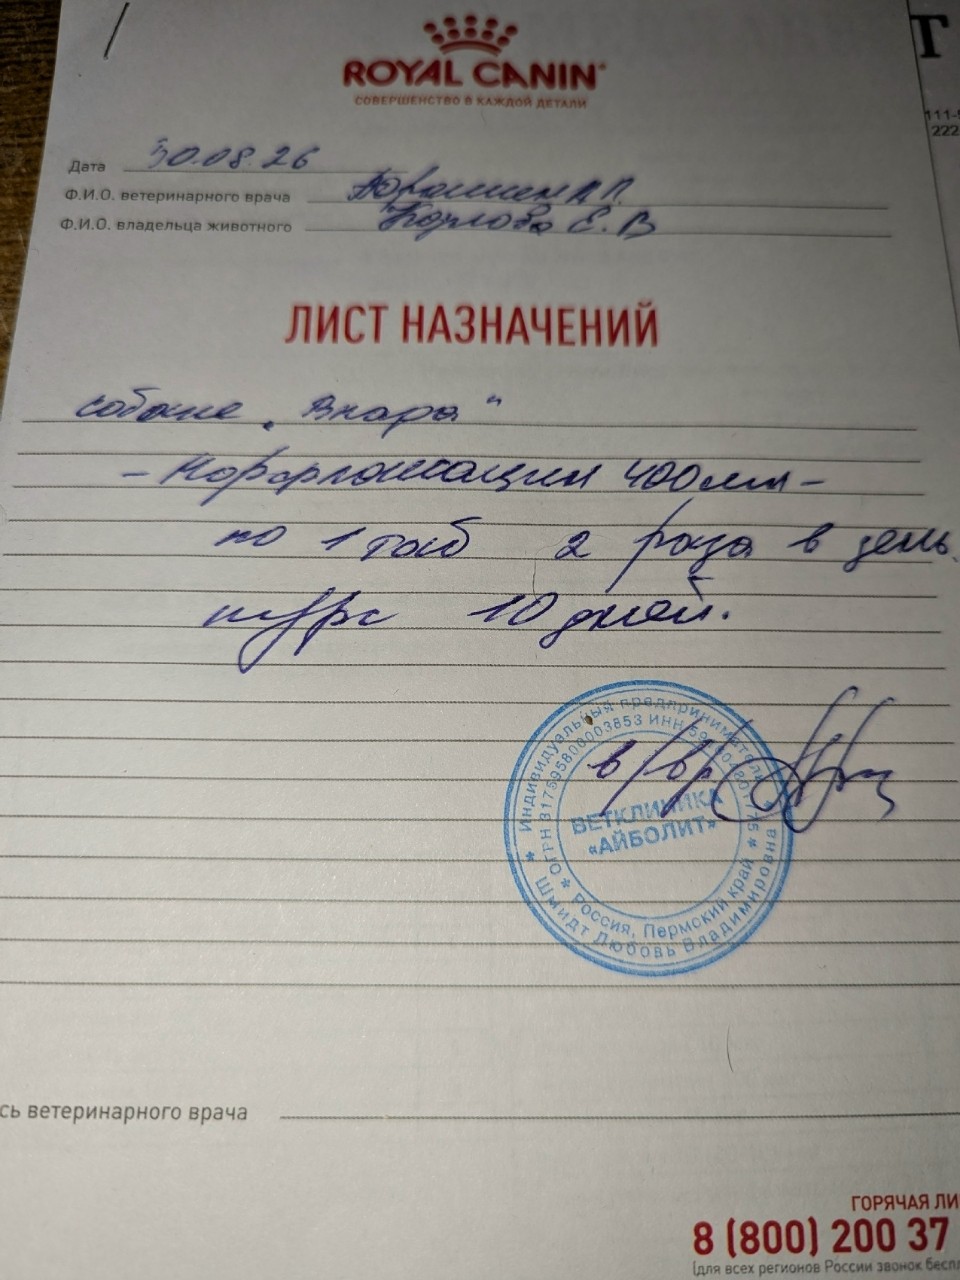 ROYAL CANIN
СОВЕРШЕНСТВО В КАЖДОЙ ДЕТАЛИ
Т
111-
222
Дата 30.08.26
Ф.И.О. ветеринарного врача
Ф.И.О. владельца животного Е. В
ЛИСТ НАЗНАЧЕНИЙ
собаке
- Норфлоксацин 400мг -
по 1 таб 2 раза в день
курс 10 дней.
Индивидуальный предприниматель
ОГРН 317595800003853 ИНН
в/вр
ВЕТКЛИНИКА
«АЙБОЛИТ»
Россия, Пермский край
Шмидт Любовь Владимировна
сь ветеринарного врача
ГОРЯЧАЯ ЛИ
8 (800) 200 37
(для всех регионов России звонок бесп